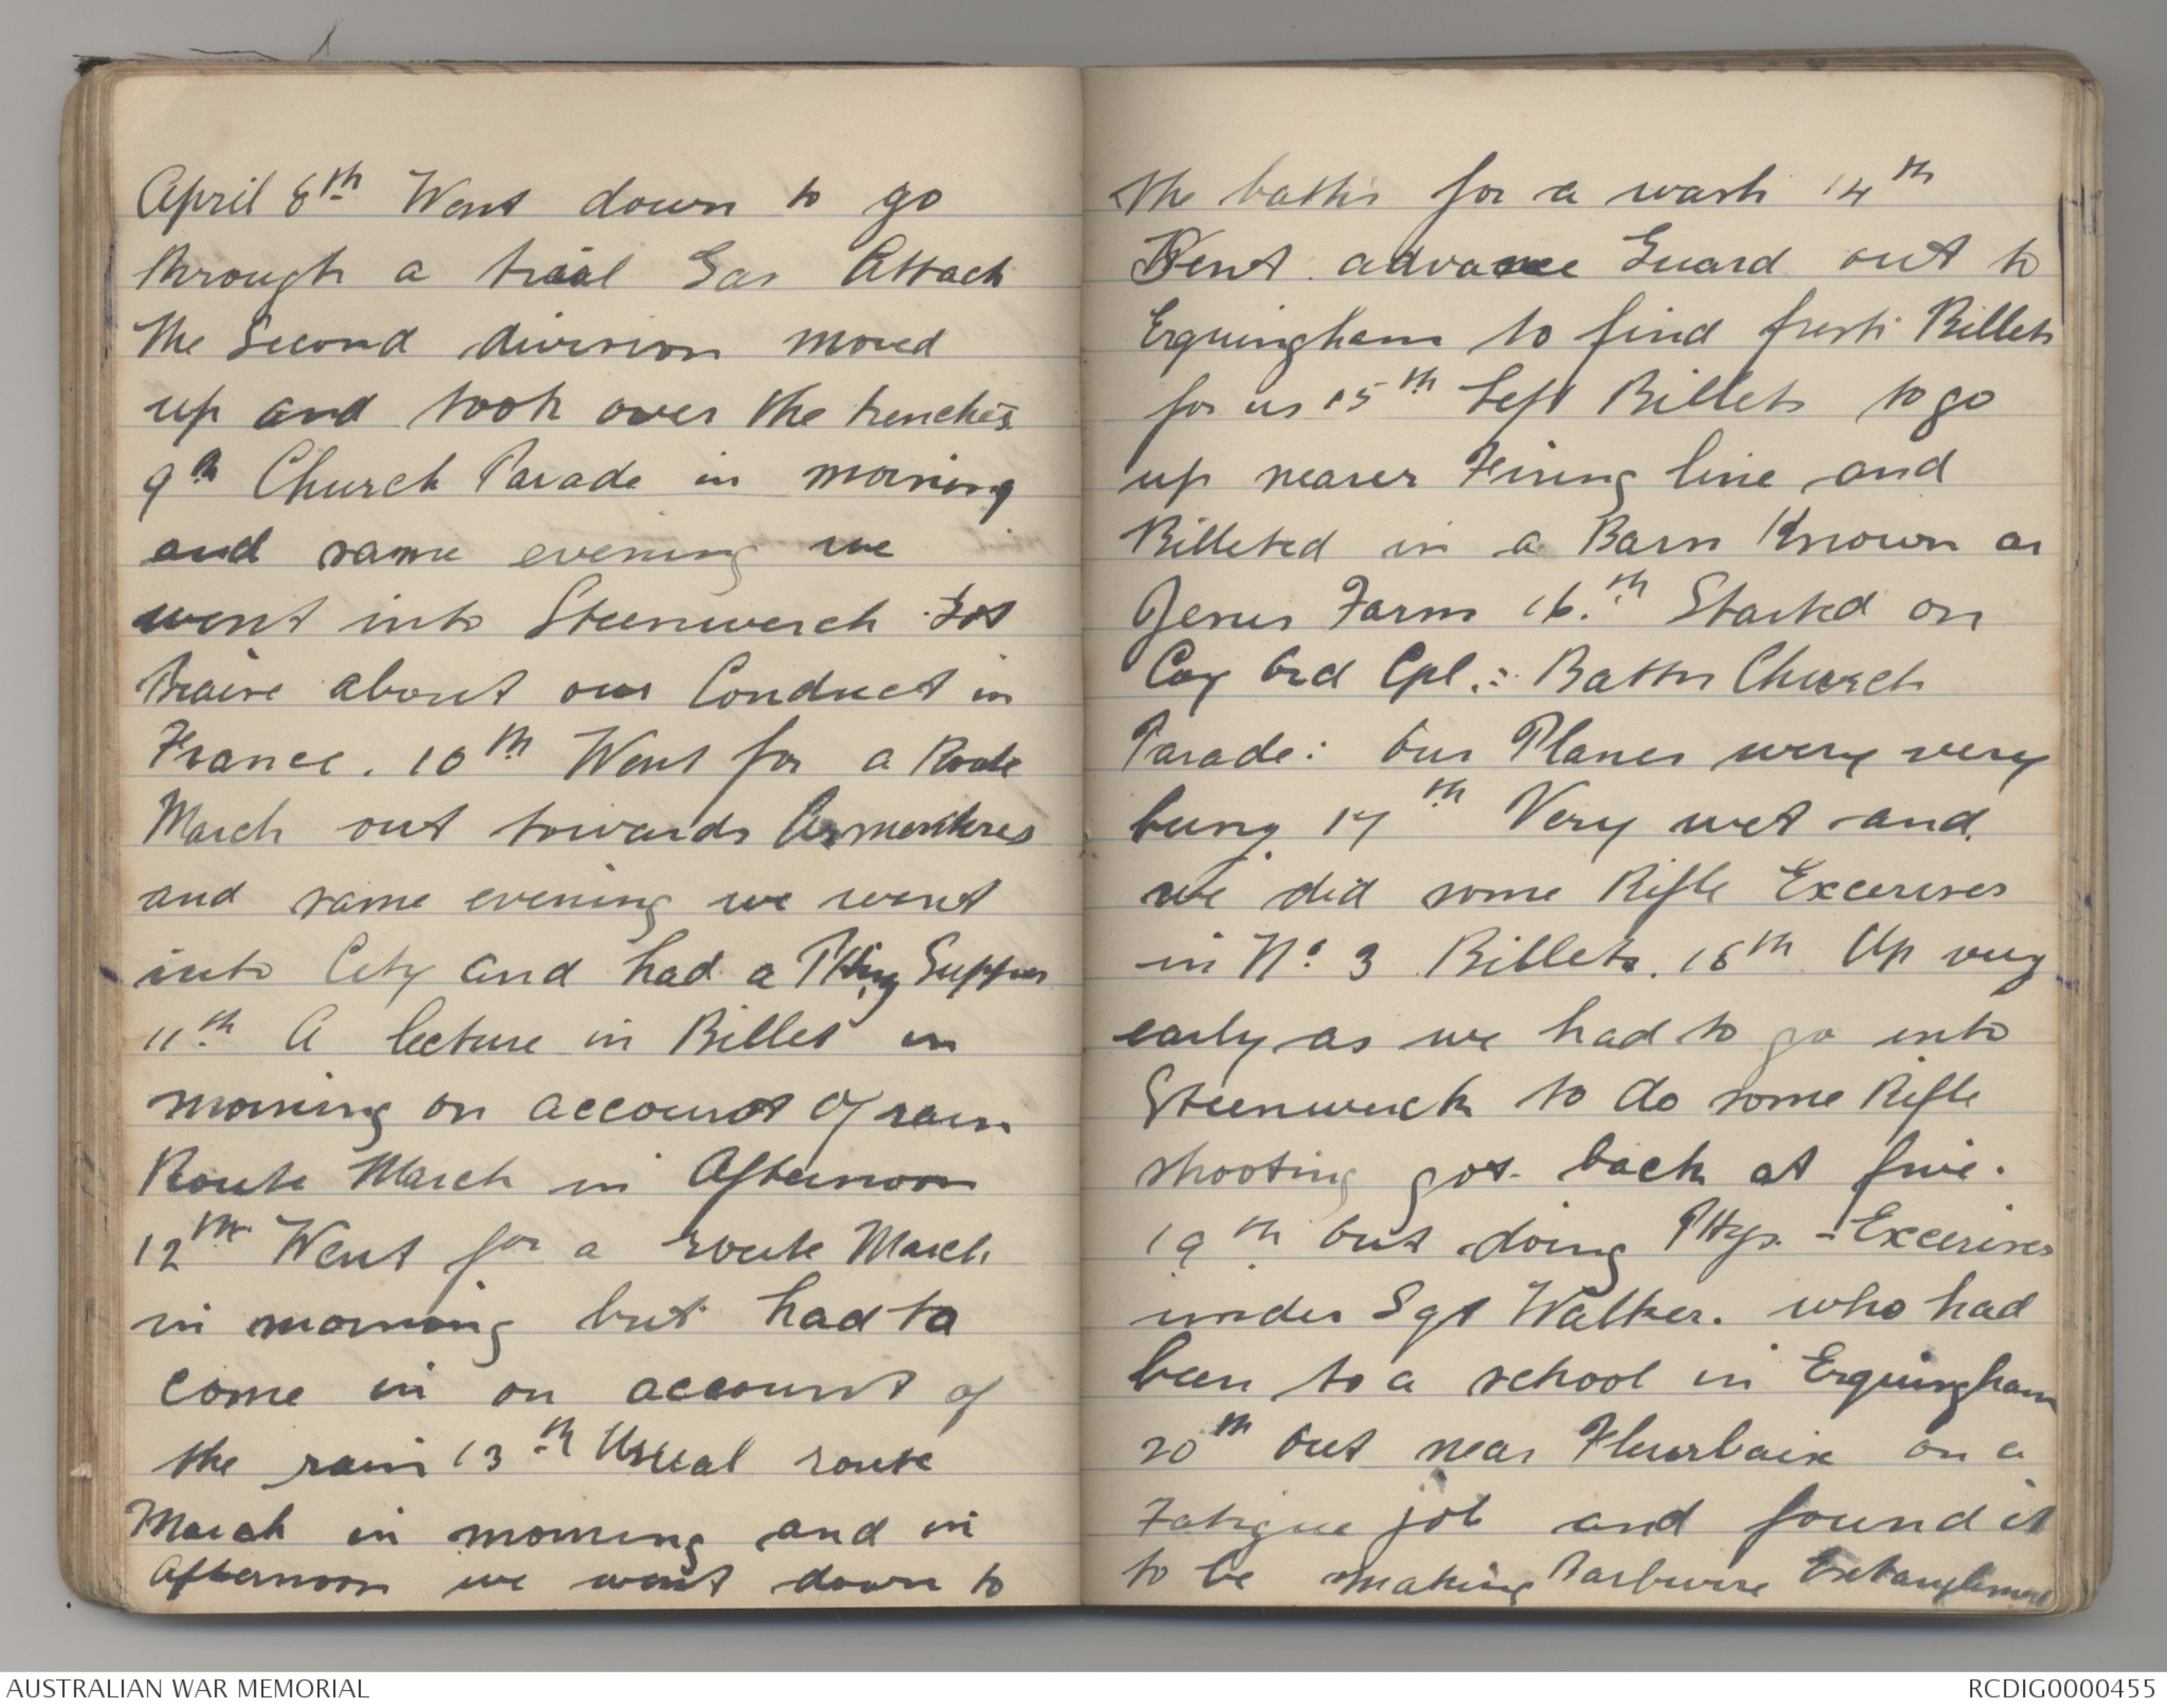 April 8th Went down to go
through a trial Gas Attack
The Second division moved
up and took over the trenches
9th Church Parade in morning
and same evening we
went into Steenwerck Got
Praise about our Conduct in
France. 10th Went for a Route
March out towards Armentieres
and same evening we went
into City and had a Supper
11th A lecture in Billet in
morning on account of rain
Route March in Afternoon
12th Went for a route March
in morning but had to
come in on account of
the rain 13th Usual route
March in morning and in
Afternoon we went down to
the baths for a wash 14th
Sent advance Guard out to
Erquingham to find fresh Billets
for us 15th Left Billets to go
up nearer Firing line and
Billeted in a Barn Known as
Jesus Farm 16th Started on
Coy Ord Cpl. Battn Church
Parade: Our Planes were very
busy 17th Very wet and
we did some Rifle Excerises
in No 3 Billets. 18th Up very
early as we had to go into
Steenwerck to do some Rifle
shooting got back at five.
19th Out doing Phys. Excerises
under Sgt Walker. who had
been to a school in Erquingham
20th Out near Fleurbaix on a
Fatigue job and found it
to be making Barbwire Entanglement